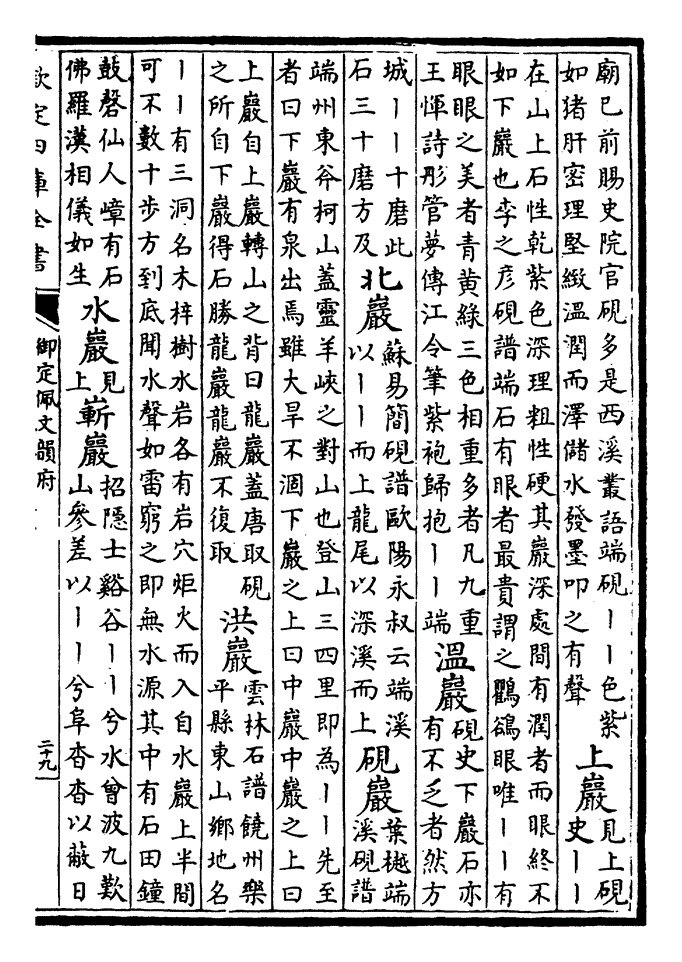 廟巳前賜史院官硯多是西溪叢語端硯丨丨色紫
如猪肝密理堅緻溫潤而澤儲水發墨叩之有聲
上巖
見上硯
史丨丨
在山上石性乾紫色深理粗性硬其巖深處間有潤者而眼終不
如下巖也李之彥硯譜端石有眼者最貴謂之鸜鵒眼唯丨丨有
眼眼之美者青黃綠三色相重多者凡九重
王惲詩彤管夢傳江令筆紫袍歸抱丨丨端
溫巖
硯史下巖石亦
有不乏者然方
城丨丨十磨此
石三十磨方及
北巖
蘇易簡硯譜歐陽永叔云端溪
以丨丨而上龍尾以深溪而上
硯巖
葉樾端
溪硯譜
端州東斧柯山蓋靈羊峽之對山也登山三四里即為丨丨先至
者曰下巖有泉出焉雖大旱不涸下巖之上曰中巖中巖之上曰
上巖自上巖轉山之背曰龍巖蓋唐取硯
之所自下巖得石勝龍巖龍巖不復取
洪巖
雲林石譜饒州樂
平縣東山鄉地名
丨丨有三洞名木梓樹水岩各有岩穴炬火而入自水巖上半間
可不數十步方到底聞水聲如雷窮之即無水源其中有石田鐘
鼓磬仙人嶂有石
佛羅漢相儀如生
水巖
見
上
嶄巖
招隱士谿谷丨丨兮水曾波九歎
山參差以丨丨兮阜杳杳以蔽日
欽定四庫全書
御定佩文韻府
二十九